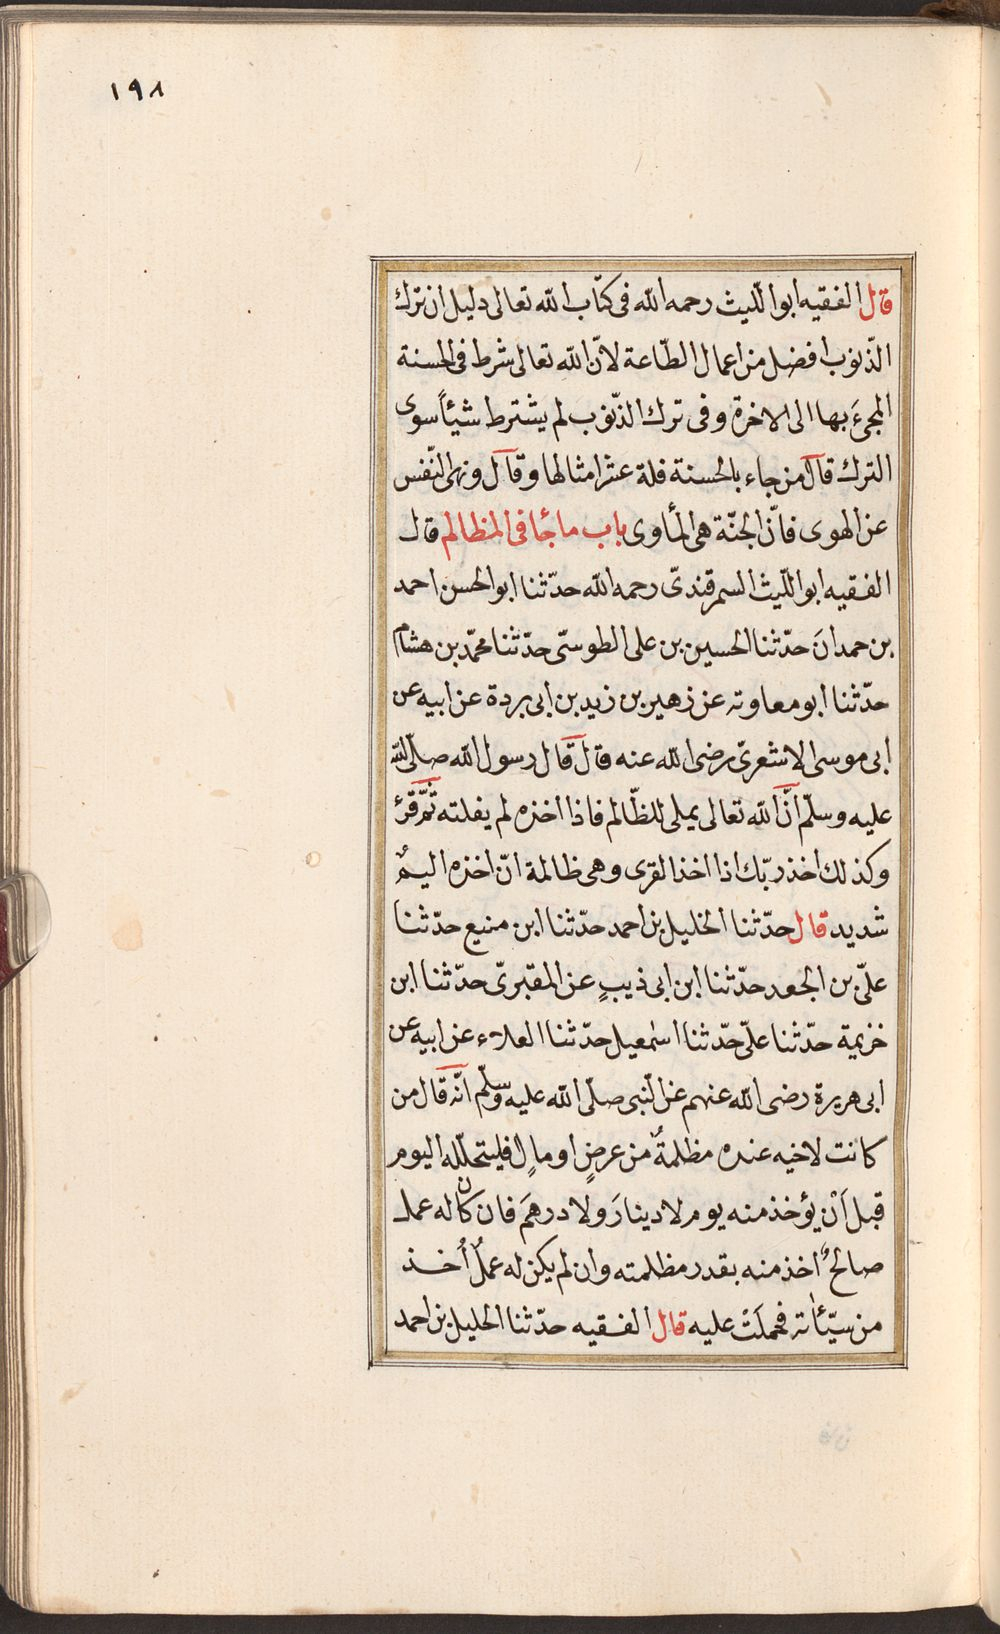 ١٩٨
قال الفقيه ابوا للّيث رحمه الله فى كتّاب الله تعالى دليل ان ترك
الذّنوب افضل من اعمال الطّاعة لانّ الله تعالى شرط فى الحسنة
المجىَٔ بها الى الاخرة وفى ترك الذّنوب لم يشترط شيئاً سوى
الترك قال من جاء بالحسنة فلة عشر امثالها وقال ونهى النّفس
عن الهوى فانّ الجنّة هى المأوى باب ما جٔا فى المظالم قال
الفقيه ابو اللّيث السمرقندىّ رحمه الله حدّثنا ابو الحسن احمد
بن حمدانَ حدّثنا الحسين بن على الطوسىّ حدّثنا محمّد بن هشام
حدّثنا ابو معاوته عن زهير بن زيد بن ابى بردة عن ابيه عن
ابى موسى الاشعرىّ رضى الله عنه قال قال رسول الله صلّى الله
عليه وسلّم انّ الله تعالى يملى للظّالم فاذا اخذه لم يفلته ثمّ قرٔ
وكذلك اخذ ربّك اذا اخذ القرى وهى ظالمة انّ اخذه اليمٌ
شديد قال حدّثنا الخليل بن احمد حدّثنا ابن منيع حدّثنا
علىّ بن الجعد حدّثنا ابن ابى ذيبٍ عن المقبرىّ حدّثنا ابن
خزيمة حدّثنا علىّ حدّثنا اسمٰعيل حدّثنا العلاء عن ابيه عن
ابى هريرة رضى الله عنهم عن النّبى صلّى الله عليه وسلّم انّه قال من
كانت لاخيه عنده مظلمةٌ من عرضٍ او مالٍ فليتحلّله اليوم
قبل اَنْ يؤخذ منه يوم لا دينارَ ولا درهمَ فان كان له عمل
صالحٌ اخذ منه بقدر مظلمته وان لم يكن له عملٌ اُخذ
من سيّئاته فحملَتْ عليه قال الفقيه حدّثنا الخليل بن احمد